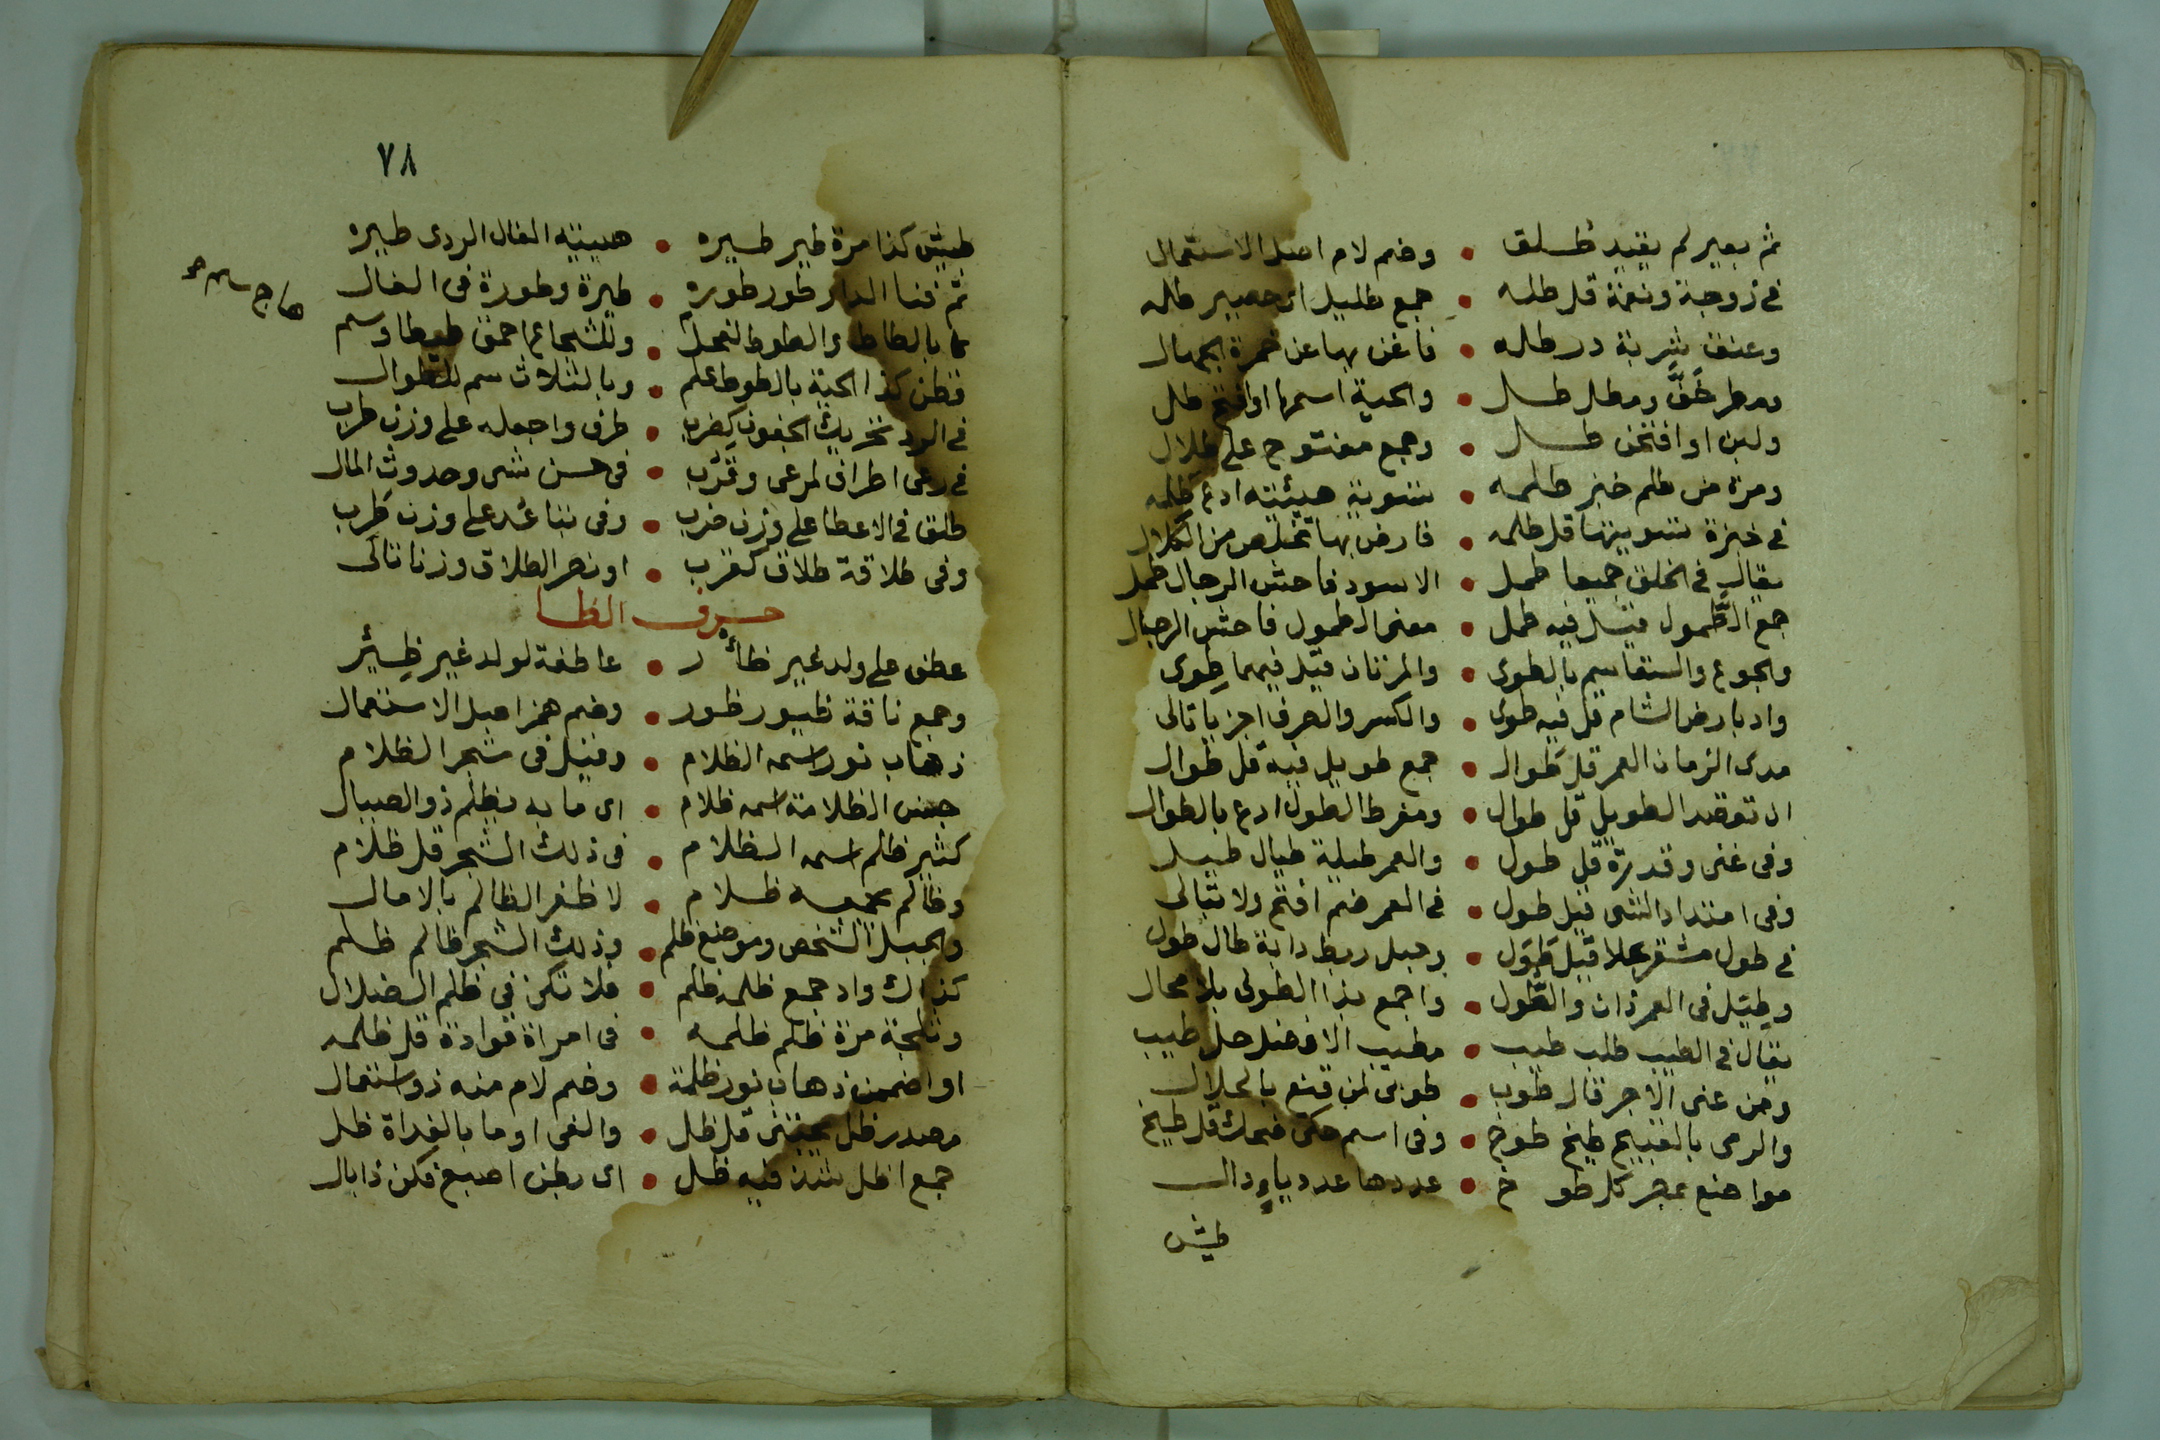 ثم بعير لم يقيد طلق • وضم لام اصل الاستعمال
فى زوجة ونعمة قل طله • جمع طليل اى حصير طلله
وعنق شربة در طله • فاغن بها عن خمرة الجهال
ومطر خف ومطل طل • والحية اسمها او افتح طل
ولبن او افتحن طل • وجمع مفتوح على طلال
ومرة من طلم خبز طلمه • تسوية هيئته ادع طلمه
فى خبزة تسويتها قل طلمه • فارض بها تخلص من الكلال
يقال فى الخلق جميعا طمل • الاسود فاحش الرجال طمل
جمع الطمول قيل فيه طمل • معنى الطمول فاحش الرجال
والجوع والسقا سم بالطوى • والمرتان قيل فيهما طوى
واد بارض الشام قل فيه طوى • والكسر والصرف اجز يا تالى
مدى الزمان العمر قل طوال • جمع طويل فيه قل طوال
ان تقصد الطويل قل طوال • ومفرط الطول ادع بالطوال
وفى غنى وقدرة قل طول • والعمر طيلة طيال طيل
وفى امتداد الشى قيل طول • فى العمر ضم افتح ولا تبالى
فى طول مشفر علا قيل طول • وحبل ربط دابة طال طول
وطيل فى العمر ذان والطول • واجمع بذا الطولى بلا محال
يقال فى الطيب طلب طيب • مطيب الافضل حل طيب
ومن عنى الاجر قال طوب • طوبى لمن قنع بالحلال
والرمى بالقبيح طيخ طوخ • وفى اسم حكى ضحك قل طيخ
مواضع بمصر كل طوخ • عددها عدد ياء ودال
طيش
٧٨
طيش كذا مرة طير طيره • هيئته الفال الردى طيره
ثم فنا الدار طور طوره • طيرة وطورة فى الفال
سما بالطاط والطوط لفحل • وللشجاع احمق طيطا وسم
قطن كذا الحية بالطوط علم • وبالثلاث سم للطوال
فى الرد تحريك الجفون كضرب • طرف واجعله على وزن طرب
فى رعى اطراف لمرعى وقرب • فى حسن شى وحدوث المال
طلق فى الاعطا على وزن ضرب • وفى تباعد على وزن طرب
وفى طلاقة طلاق كقرب • او نصر الطلاق وزنا تالى
حرف الظا
عطف على ولد غير ظأر • عاطفة لولد غير ظئر
وجمع ناقة ظيور ظور • وضم همز اصل الاستعمال
ذهاب نور اسمه الظلام • وقيل فى شجر الظلام
جنس الظلامة اسمه ظلام • اى ما به يظلم ذو الصيال
كثير ظلم اسمه الظلام • فى ذلك الشجر قل ظلام
وظالم جمعه ظلام • لا ظفر الظالم بالامال
والجبل الشخص وموضع ظلم • وذلك الشجر ظالم ظلم
كذاك واد جمع ظلمة ظلم • فلا تكن فى ظلم الضلال
وثلجة مرة ظلم ظلمه • فى امراة قوادة قل ظلمه
او اضممن ذهاب نور ظلمة • وضم لام منه ذو استعمال
مصدر ظل بمعنى قل ظل • والفى او ما بالغداة ظل
جمع اظل فيه ظل • اى بطن اصبع فكن ذا بال